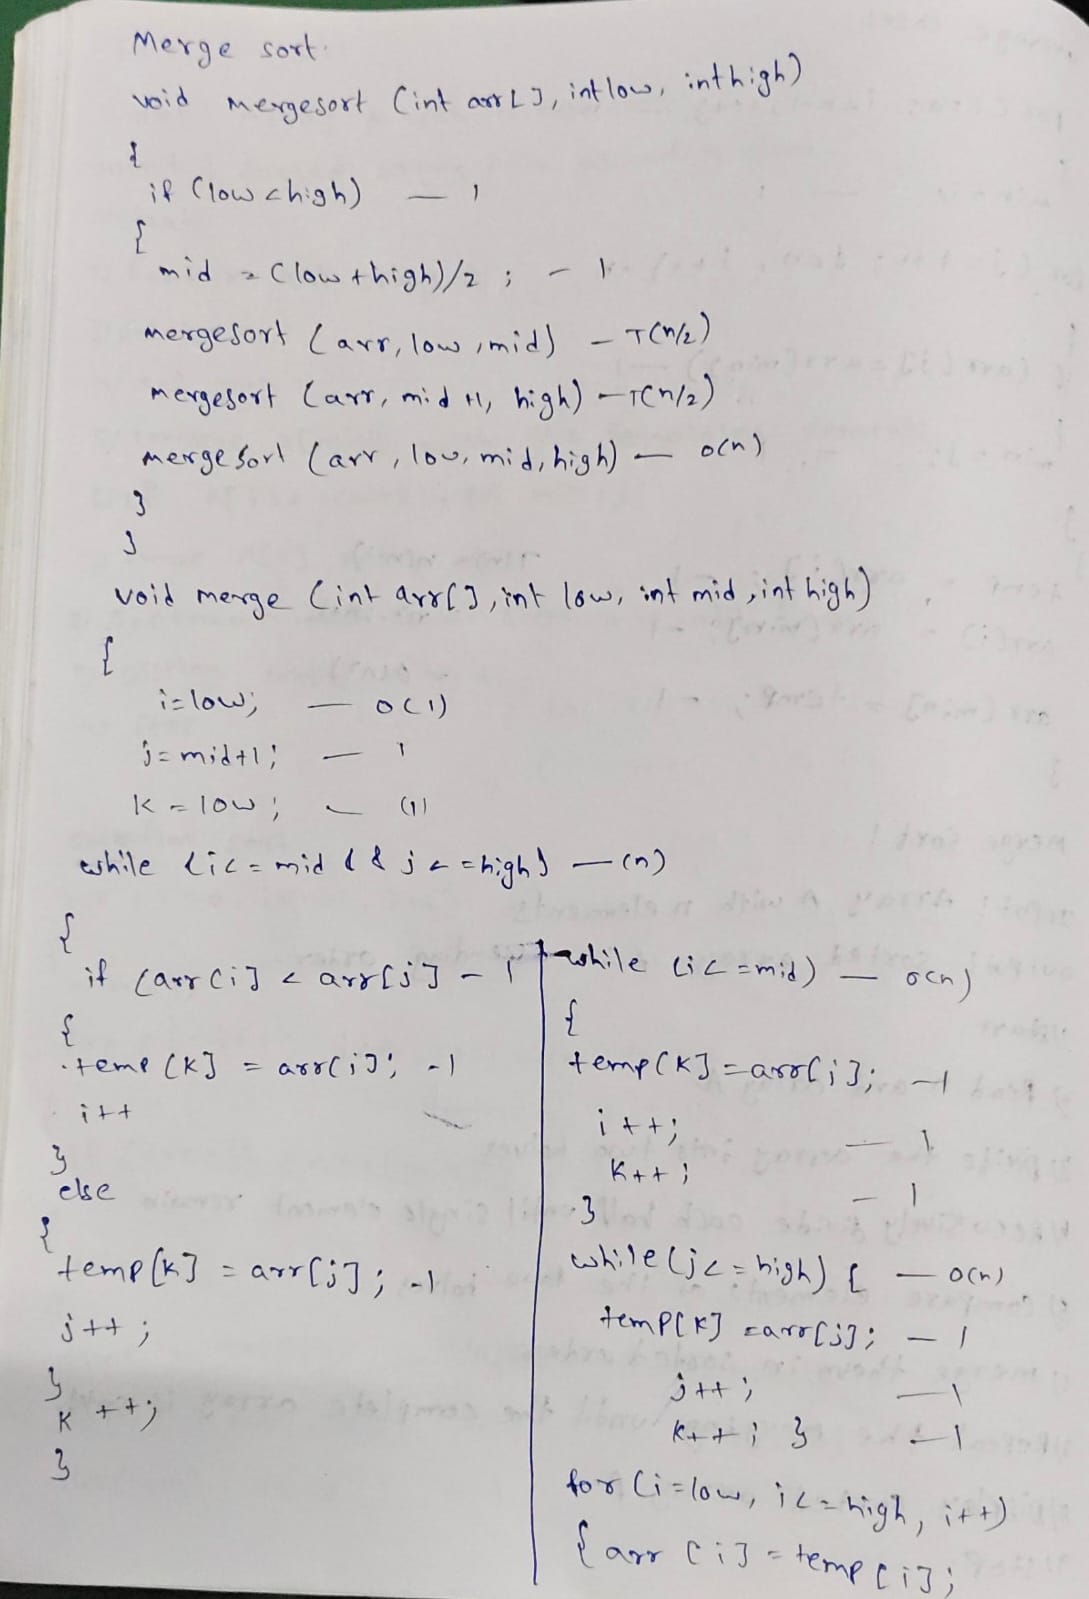 Merge sort:
void mergesort (int arr[], int low, int high)
{
if (low < high) — 1
{
mid = (low + high)/2 ; — 1
mergesort (arr, low, mid) — T(n/2)
mergesort (arr, mid +1, high) — T(n/2)
mergesort (arr, low, mid, high) — o(n)
}
}
void merge (int arr[], int low, int mid, int high)
{
i=low; — o(1)
j=mid+1; — 1
k=low; — (1)
while (i<=mid && j<=high) — (n)
{
if (arr[i] < arr[j] — 1
{
temp[k] = arr[i]; -1
i++
}
else
{
temp[k] = arr[j]; -1
j++;
}
k++;
}
while (i<=mid) — o(n)
{
temp[k]=arr[i]; —1
i++; — 1
k++; — 1
}
while(j<=high) { — o(n)
temp[k]=arr[j]; — 1
j++; —1
k++; } —1
for (i=low, i<=high, i++)
{ arr[i] = temp[i];